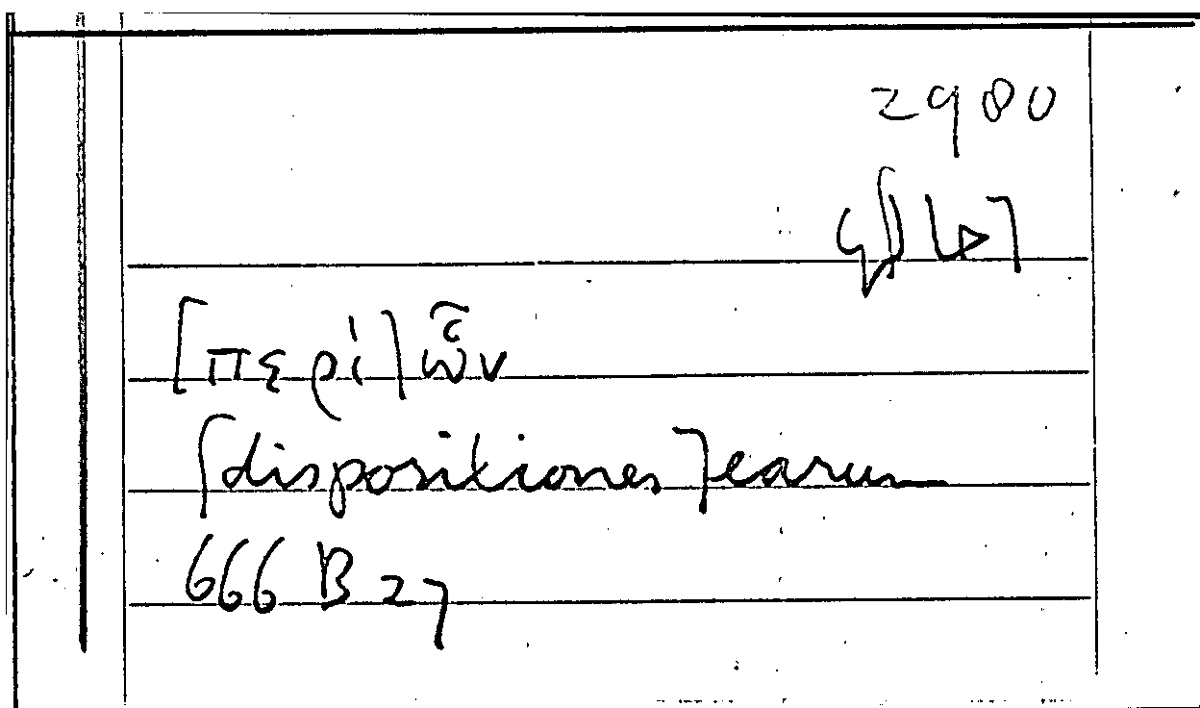 2980
[περί] ὧν
[dispositiones] earum
666 B 27